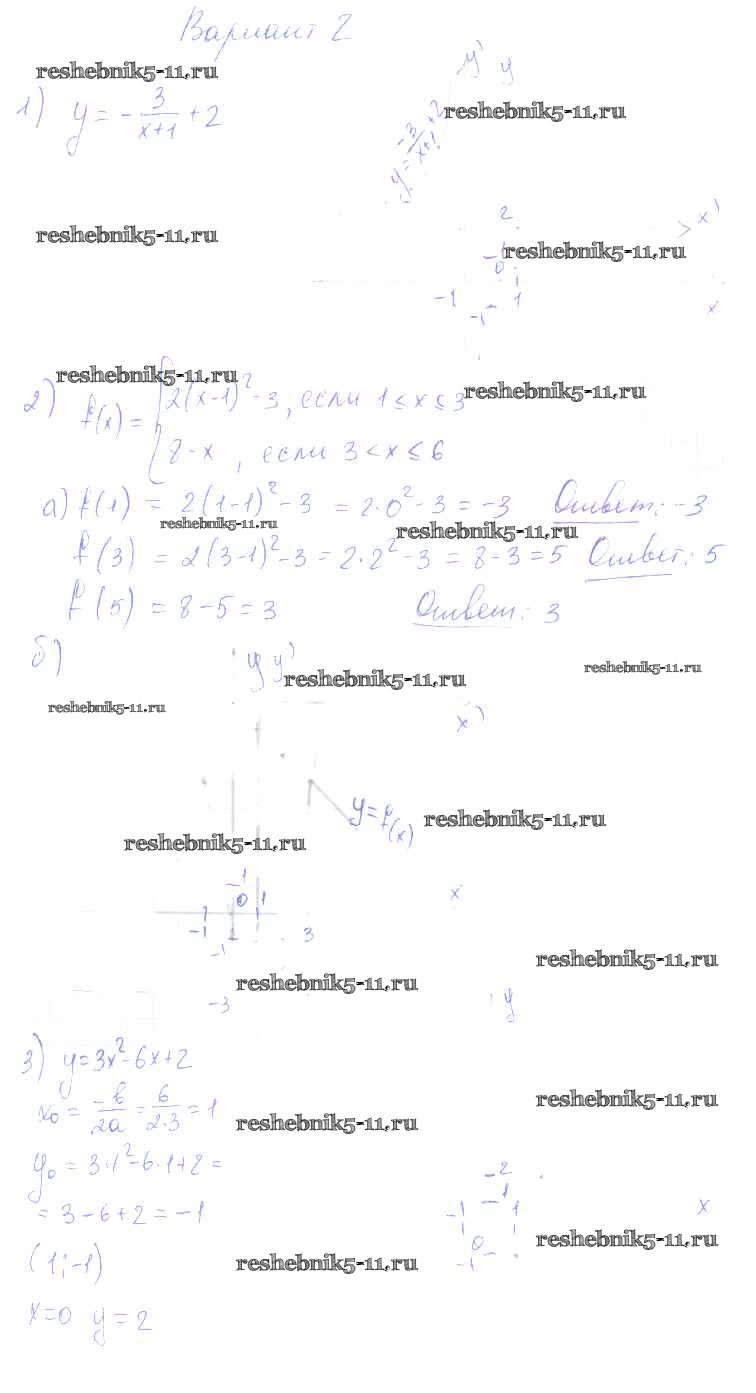 Вариант 2
reshebnik5-11.ru
y' y
1) y = -3/(x+1) + 2
reshebnik5-11.ru
y = -3/(x+1) + 2
2
x'
reshebnik5-11.ru
reshebnik5-11.ru
1
0
-1 1
-1
x
reshebnik5-11.ru
reshebnik5-11.ru
2) f(x) = { 2(x-1)² - 3, если 1 ≤ x ≤ 3
8 - x, если 3 < x ≤ 6
а) f(1) = 2(1-1)² - 3 = 2·0² - 3 = -3 Ответ: -3
reshebnik5-11.ru
reshebnik5-11.ru
f(3) = 2(3-1)² - 3 = 2·2² - 3 = 8 - 3 = 5 Ответ: 5
f(5) = 8 - 5 = 3 Ответ: 3
б)
y y'
reshebnik5-11.ru
reshebnik5-11.ru
reshebnik5-11.ru
x'
y = f(x)
reshebnik5-11.ru
reshebnik5-11.ru
1
0 1
x
-1 3
-1
reshebnik5-11.ru
reshebnik5-11.ru
-3
y
3) y = 3x² - 6x + 2
x₀ = -b/2a = 6/2·3 = 1
reshebnik5-11.ru
reshebnik5-11.ru
y₀ = 3·1² - 6·1 + 2 =
= 3 - 6 + 2 = -1
2
1
-1 1
x
0
-1
reshebnik5-11.ru
(1; -1)
reshebnik5-11.ru
x = 0 y = 2